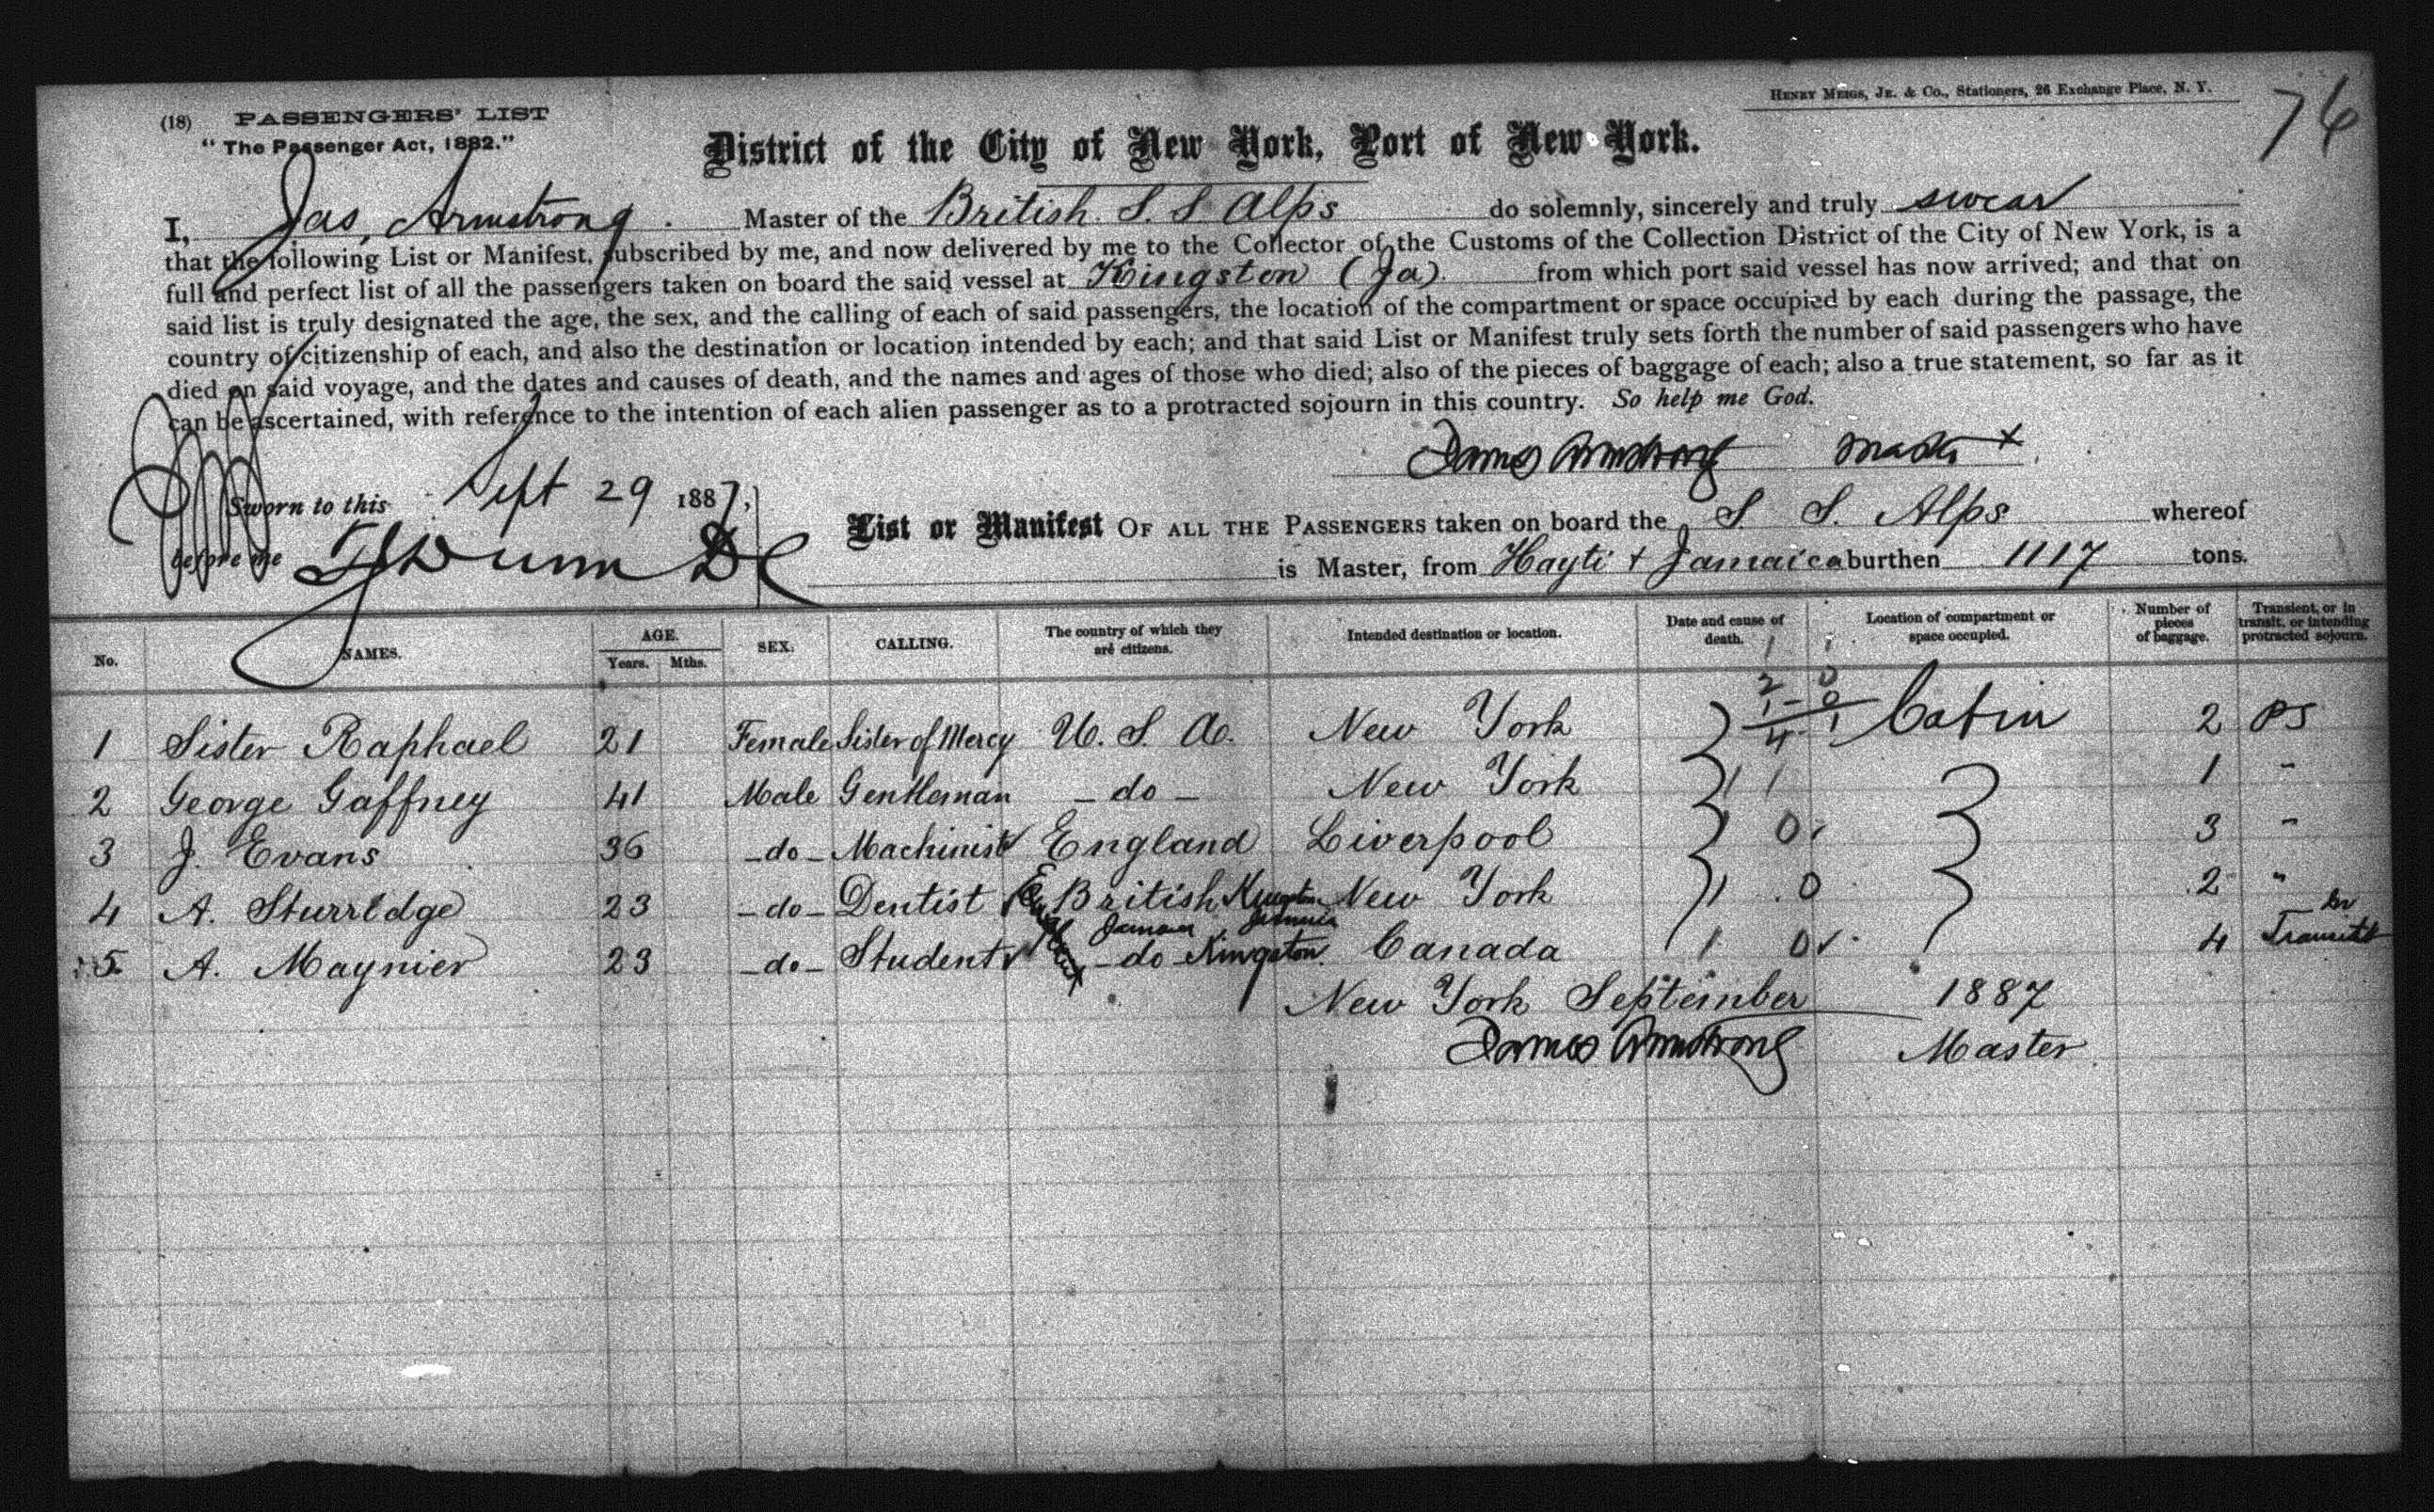 HENRY MEIGS, JR. & CO., Stationers, 26 Exchange Place, N. Y.
76
(18) PASSENGERS' LIST
"The Passenger Act, 1882."
District of the City of New York, Port of New York.
I, Jas. Armstrong Master of the British S. S Alps do solemnly, sincerely and truly swear
that the following List or Manifest, subscribed by me, and now delivered by me to the Collector of the Customs of the Collection District of the City of New York, is a
full and perfect list of all the passengers taken on board the said vessel at Kingston (Ja). from which port said vessel has now arrived; and that on
said list is truly designated the age, the sex, and the calling of each of said passengers, the location of the compartment or space occupied by each during the passage, the
country of citizenship of each, and also the destination or location intended by each; and that said List or Manifest truly sets forth the number of said passengers who have
died on said voyage, and the dates and causes of death, and the names and ages of those who died; also of the pieces of baggage of each; also a true statement, so far as it
can be ascertained, with reference to the intention of each alien passenger as to a protracted sojourn in this country. So help me God.
James Armstrong Master
Sworn to this Sept 29 1887,
before me
List or Manifest OF ALL THE PASSENGERS taken on board the S S. Alps whereof
is Master, from Hayti + Jamaica burthen 1117 tons.
No. NAMES. AGE. Years. Mths. SEX. CALLING. The country of which they are citizens. Intended destination or location. Date and cause of death. Location of compartment or space occupied. Number of pieces of baggage. Transient, or in transit, or intending protracted sojourn.
1 Sister Raphael 21 Female Sister of Mercy U. S. A. New York Cabin 2 PS
2 George Gaffney 41 Male Gentleman - do - New York 1 1 1 "
3 J. Evans 36 - do - Machinist England Liverpool 1 0 3 "
4 A. Sturridge 23 - do - Dentist British Kingston New York 1 0 2 "
Jamaica Jamaica
5 A. Maynier 23 - do - Student - do - Kingston Canada 1 0 4 In Transit
New York September 1887
James Armstrong Master